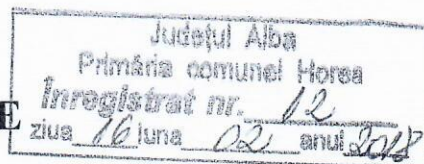 Județul Alba
Primăria comunei Horea
Înregistrat nr. 12
E
ziua 16 luna 02 anul 2018